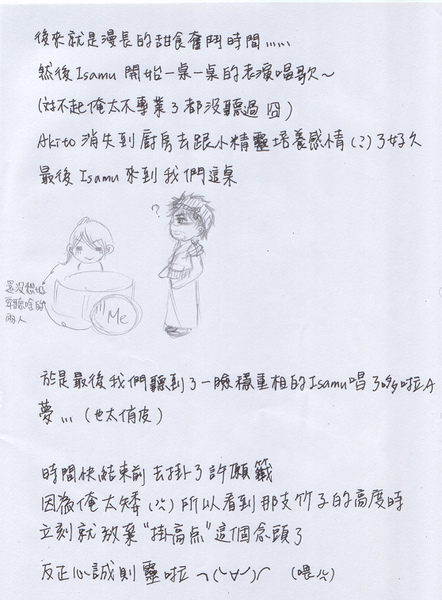 後來就是漫長的甜食奮鬥時間......
然後Isamu 開始一桌一桌的表演唱歌~
(對不起俺太不專業了都沒聽過 囧)
Akito 消失到廚房去跟小精靈培養感情(?)了好久
最後Isamu來到我們這桌
?
還沒想好
要聽啥的
兩人
Me
於是最後我們聽到了一臉穩重相的Isamu唱了哆啦A
夢... (也太俏皮)
時間快結束前去掛了許願籤
因為俺太矮(?) 所以看到那支竹子的高度時
立刻就放棄"掛高点"這個念頭了
反正心誠則靈啦
(喂